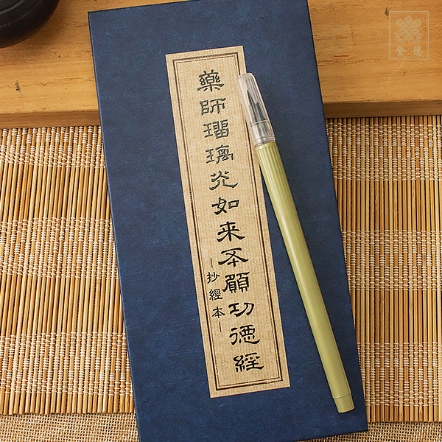 藥師瑠璃光如來本願功德經
-抄經本-